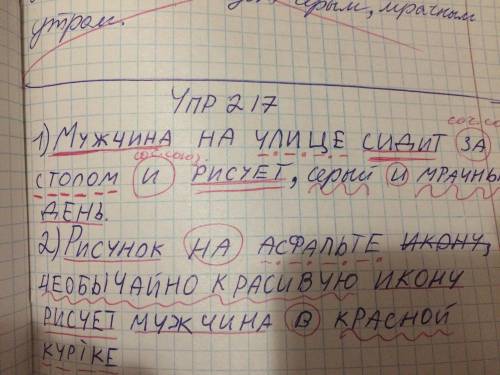 серым, мрачным
утром.
Упр 217
соч.союз
1) Мужчина на улице сидит за
соч.союз.
столом и рисует, серый и мрачны
день.
2) Рисунок на асфальте икону,
необычайно красивую икону
рисует мужчина в красной
куртке